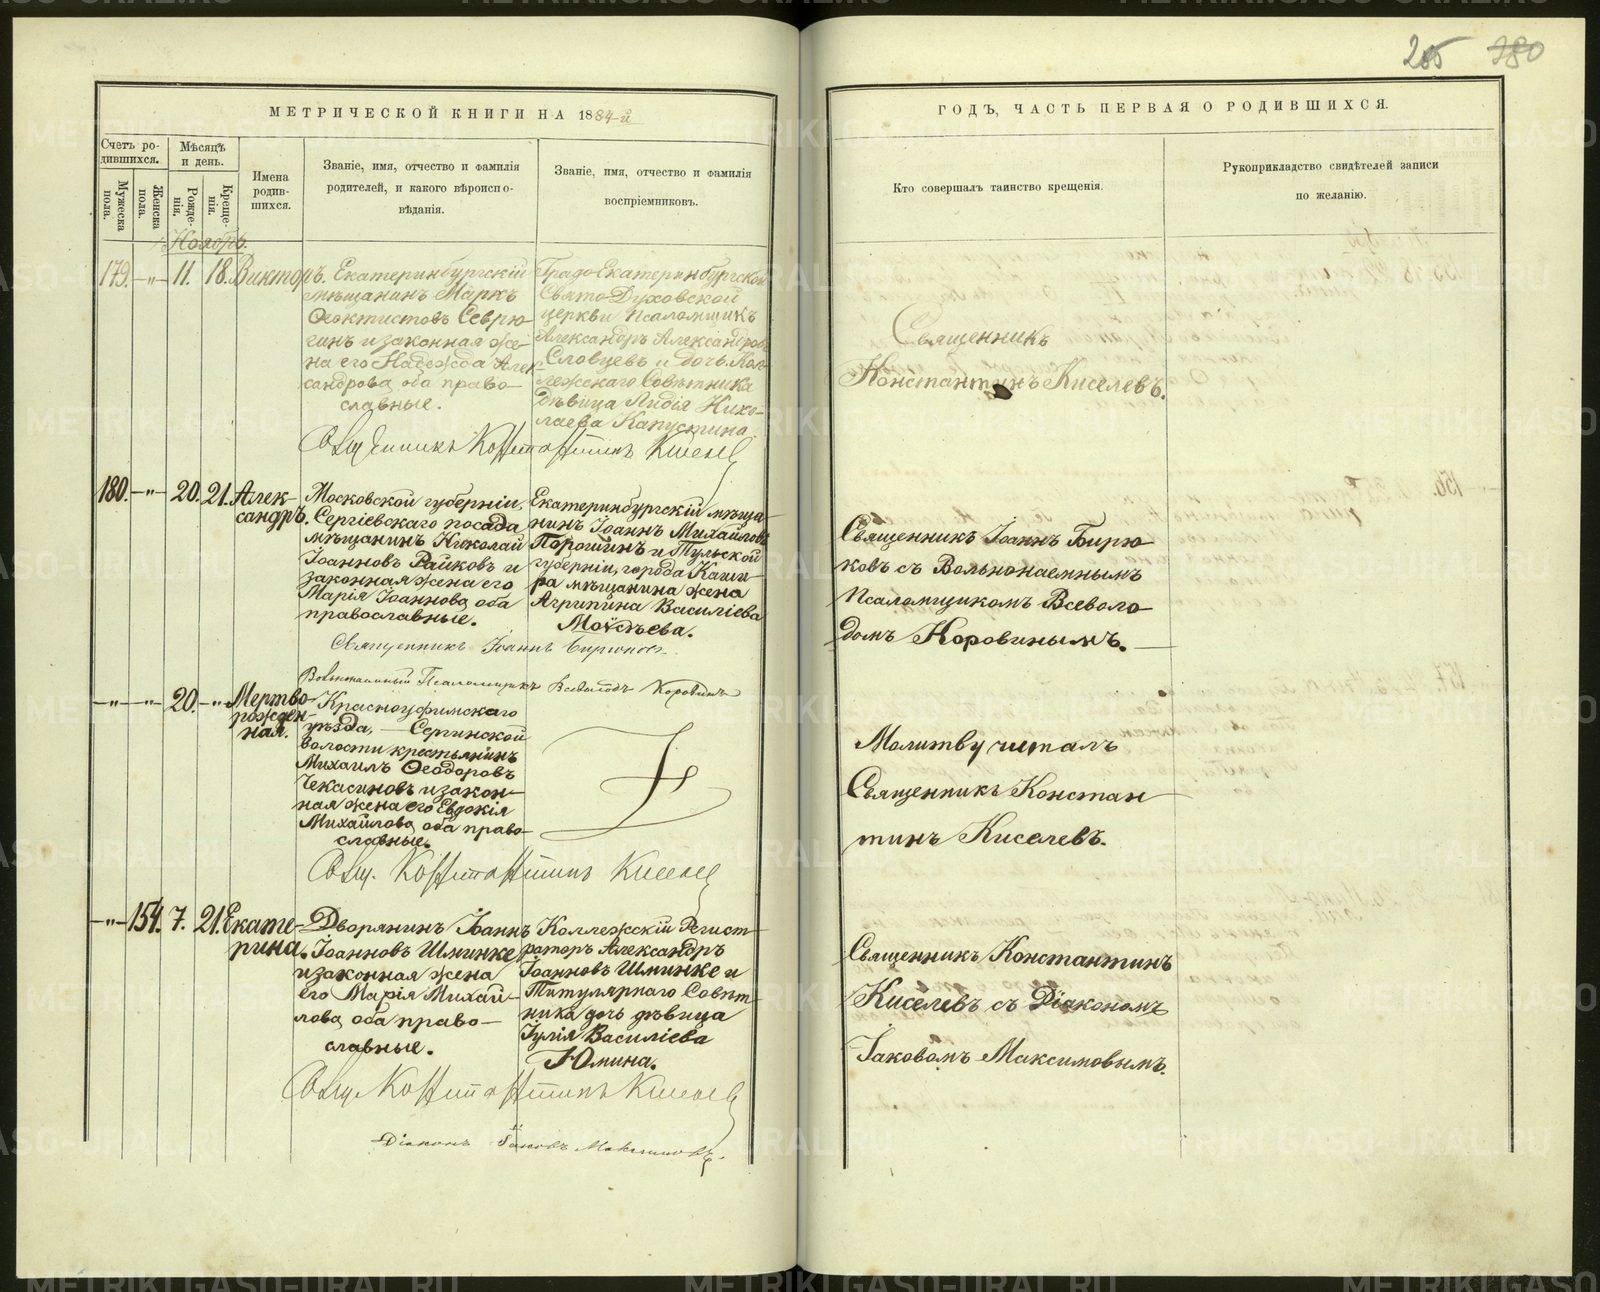 205 380
МЕТРИЧЕСКОЙ КНИГИ НА 1884-й
ГОДЪ, ЧАСТЬ ПЕРВАЯ О РОДИВШИХСЯ.
Счетъ ро-
дившихся.
Мужеска
пола.
Женска
пола.
Мѣсяцъ
и день.
Рожде-
нія.
Креще-
нія.
Имена
родив-
шихся.
Званіе, имя, отчество и фамилія
родителей, и какого вѣроиспо-
вѣданія.
Званіе, имя, отчество и фамилія
воспріемниковъ.
Кто совершалъ таинство крещенія.
Рукоприкладство свидѣтелей записи
по желанію.
Ноябрь.
179. -„- 11. 18. Викторъ.
Екатеринбургскій
мѣщанинъ Маркъ
Ѳеоктистовъ Севрю-
гинъ и законная же-
на его Надежда Алек-
сандрова, оба право-
славные.
Градо-Екатеринбургской
Свято-Духовской
церкви Псаломщикъ
Александръ Александровъ
Словцевъ и дочь Кол-
лежскаго Совѣтника
дѣвица Лидія Нико-
лаева Капустина.
Священникъ
Константинъ Киселевъ.
Священникъ Константинъ Киселевъ
180. -„- 20. 21. Алек-
сандръ.
Московской губерніи,
Сергіевскаго посада
мѣщанинъ Николай
Іоанновъ Райковъ и
законная жена его
Марія Іоаннова, оба
православные.
Екатеринбургскій мѣща-
нинъ Іоаннъ Михайловъ
Порошинъ и Тульской
губерніи, города Каши-
ра мѣщанина жена
Агрипина Василіева
Моѵсѣева.
Священникъ Іоаннъ Бирю-
ковъ съ Вольнонаемнымъ
Псаломщикомъ Всеволо-
домъ Коровинымъ.
Священникъ Іоаннъ Бирюковъ.
Вольнонаемный Псаломщикъ Всеволодъ Коровинъ
-„- -„- 20. -„- Мертво-
рожден-
ная.
Красноуфимскаго
уѣзда, Сергинской
волости крестьянинъ
Михаилъ Ѳеодоровъ
Чекасиновъ и закон-
ная жена его Евдокія
Михайлова, оба право-
славные.
Молитву читалъ
Священникъ Констан-
тинъ Киселевъ.
Свящ. Константинъ Киселевъ
-„- 154. 7. 21. Екате-
рина.
Дворянинъ Іоаннъ
Іоанновъ Шминке
и законная жена
его Марія Михай-
лова, оба право-
славные.
Коллежскій Регист-
раторъ Александръ
Іоанновъ Шминке и
Титулярнаго Совѣт-
ника дочь дѣвица
Іулія Василіева
Юмина.
Священникъ Константинъ
Киселевъ съ Діакономъ
Іаковомъ Максимовымъ.
Свящ. Константинъ Киселевъ
Діаконъ Іаковъ Максимовъ.
METRIKI.GASO-URAL.RU